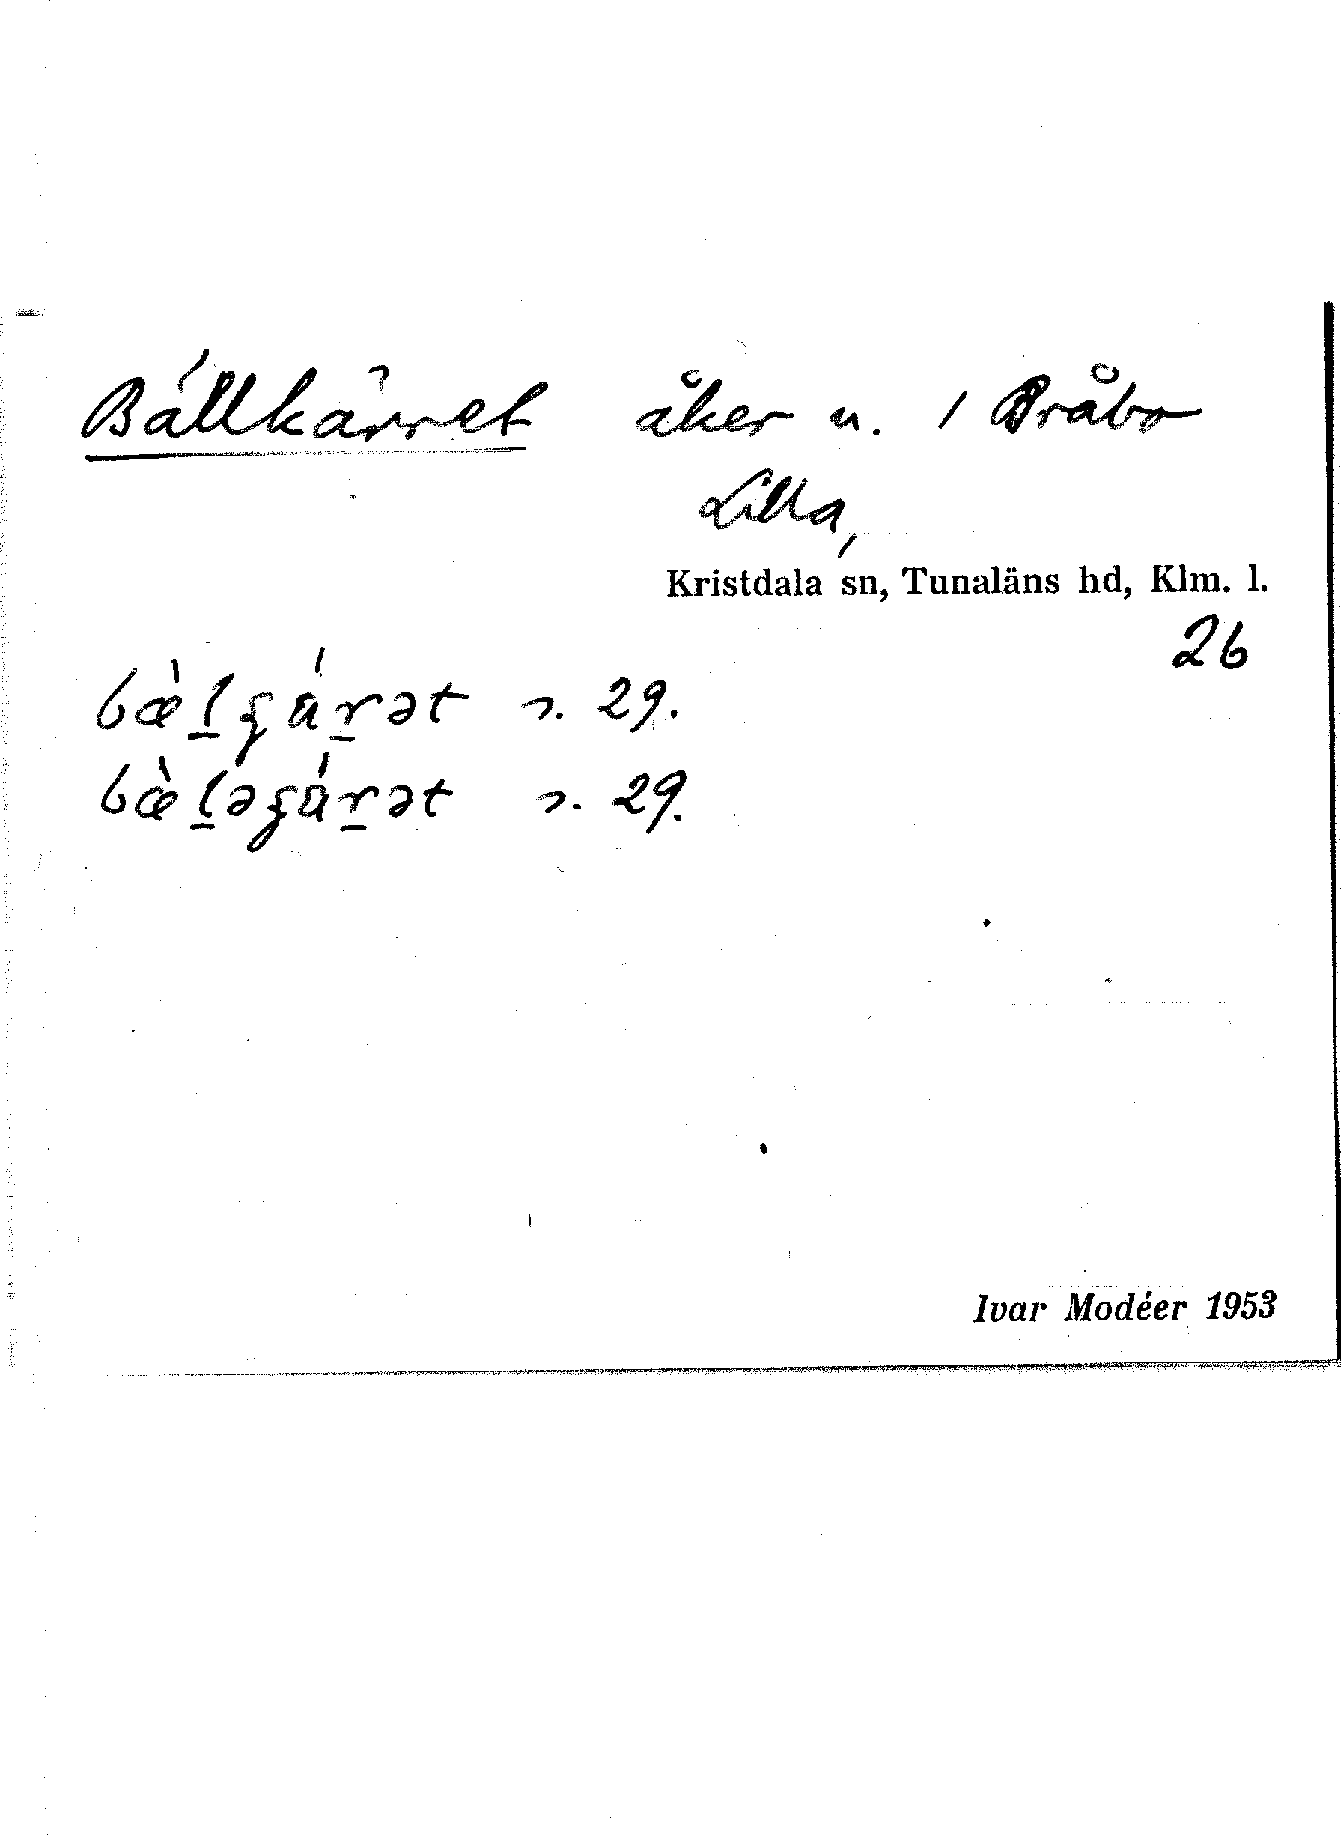 Bällkärret åker u. 1 Bråbo
Lilla,
Kristdala sn, Tunaläns hd, Klm. l.
26
s. 29.
s. 29.
Ivar Modéer 1953